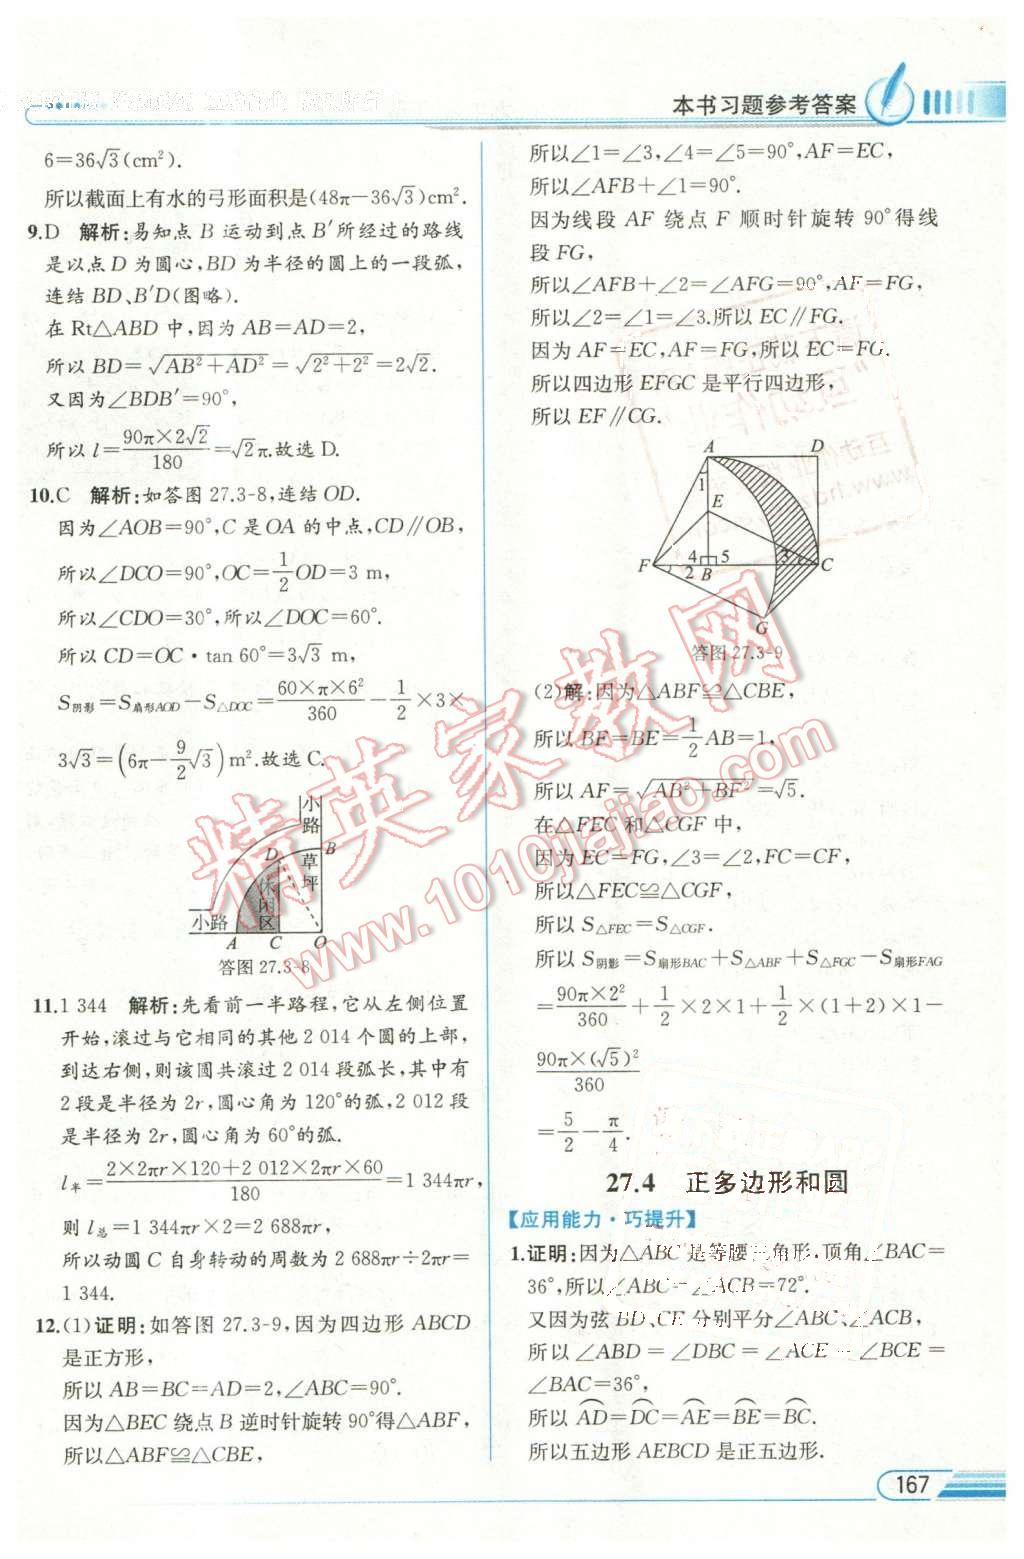 本书习题参考答案
6=36√3(cm²).
所以截面上有水的弓形面积是(48π−36√3)cm².
9.D 解析:易知点 B 运动到点 B′所经过的路线
是以点 D 为圆心,BD 为半径的圆上的一段弧,
连结 BD、B′D(图略).
在 Rt△ABD 中,因为 AB=AD=2,
所以 BD=√(AB²+AD²)=√(2²+2²)=2√2.
又因为∠BDB′=90°,
所以 l=(90π×2√2)/180=√2π.故选 D.
10.C 解析:如答图 27.3-8,连结 OD.
因为∠AOB=90°,C 是 OA 的中点,CD∥OB,
所以∠DCO=90°,OC=1/2OD=3 m,
所以∠CDO=30°,所以∠DOC=60°.
所以 CD=OC·tan 60°=3√3 m,
S阴影=S扇形AOD−S△DOC=(60×π×6²)/360−1/2×3×
3√3=(6π−9/2√3)m².故选 C.
小路
D
B
草坪
休闲区
小路
A C O
答图 27.3-8
11.1 344 解析:先看前一半路程,它从左侧位置
开始,滚过与它相同的其他 2 014 个圆的上部,
到达右侧,则该圆共滚过 2 014 段弧长,其中有
2 段是半径为 2r,圆心角为 120°的弧,2 012 段
是半径为 2r,圆心角为 60°的弧.
l半=(2×2πr×120+2 012×2πr×60)/180=1 344πr,
则 l总=1 344πr×2=2 688πr.
所以动圆 C 自身转动的周数为 2 688πr÷2πr=
1 344.
12.(1)证明:如答图 27.3-9,因为四边形 ABCD
是正方形,
所以 AB=BC=AD=2,∠ABC=90°.
因为△BEC 绕点 B 逆时针旋转 90°得△ABF,
所以△ABF≌△CBE,
所以∠1=∠3,∠4=∠5=90°,AF=EC,
所以∠AFB+∠1=90°.
因为线段 AF 绕点 F 顺时针旋转 90°得线
段 FG,
所以∠AFB+∠2=∠AFG=90°,AF=FG,
所以∠2=∠1=∠3.所以 EC∥FG.
因为 AF=EC,AF=FG,所以 EC=FG.
所以四边形 EFGC 是平行四边形,
所以 EF∥CG.
A D
1
E
4 5 3
F 2 B C
G
答图 27.3-9
(2)解:因为△ABF≌△CBE,
所以 BF=BE=1/2AB=1,
所以 AF=√(AB²+BF²)=√5.
在△FEC 和△CGF 中,
因为 EC=FG,∠3=∠2,FC=CF,
所以△FEC≌△CGF,
所以 S△FEC=S△CGF.
所以 S阴影=S扇形BAC+S△ABF+S△FGC−S扇形FAG
=(90π×2²)/360+1/2×2×1+1/2×(1+2)×1−
(90π×(√5)²)/360
=5/2−π/4.
27.4 正多边形和圆
【应用能力·巧提升】
1.证明:因为△ABC 是等腰三角形,顶角∠BAC=
36°,所以∠ABC=∠ACB=72°.
又因为弦 BD、CE 分别平分∠ABC、∠ACB,
所以∠ABD=∠DBC=∠ACE=∠BCE=
∠BAC=36°,
所以 A͡D=D͡C=A͡E=B͡E=B͡C.
所以五边形 AEBCD 是正五边形.
167
精英家教网
www.1010jiajiao.com